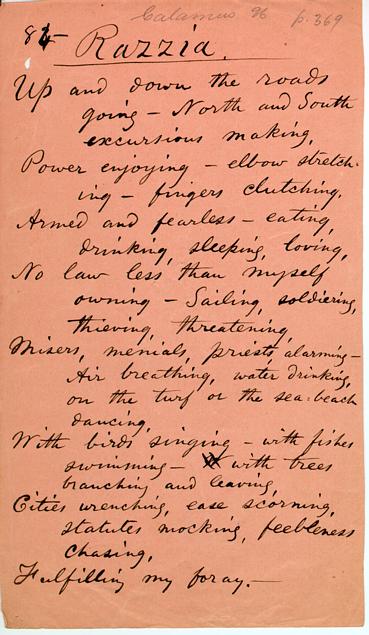 Calamus 96 p. 369
85
Razzia.
Up and down the roads
going — North and South
excursions making,
Power enjoying — elbow stretch-
ing — fingers clutching,
Armed and fearless — eating,
drinking, sleeping, loving,
No law less than myself
owning — Sailing, soldiering,
thieving, threatening,
Misers, menials, priests, alarming —
Air breathing, water drinking,
on the turf or the sea-beach
dancing,
With birds singing — with fishes
swimming — with trees
branching and leaving,
Cities wrenching, ease scorning,
statutes mocking, feebleness
chasing,
Fulfilling my foray. —